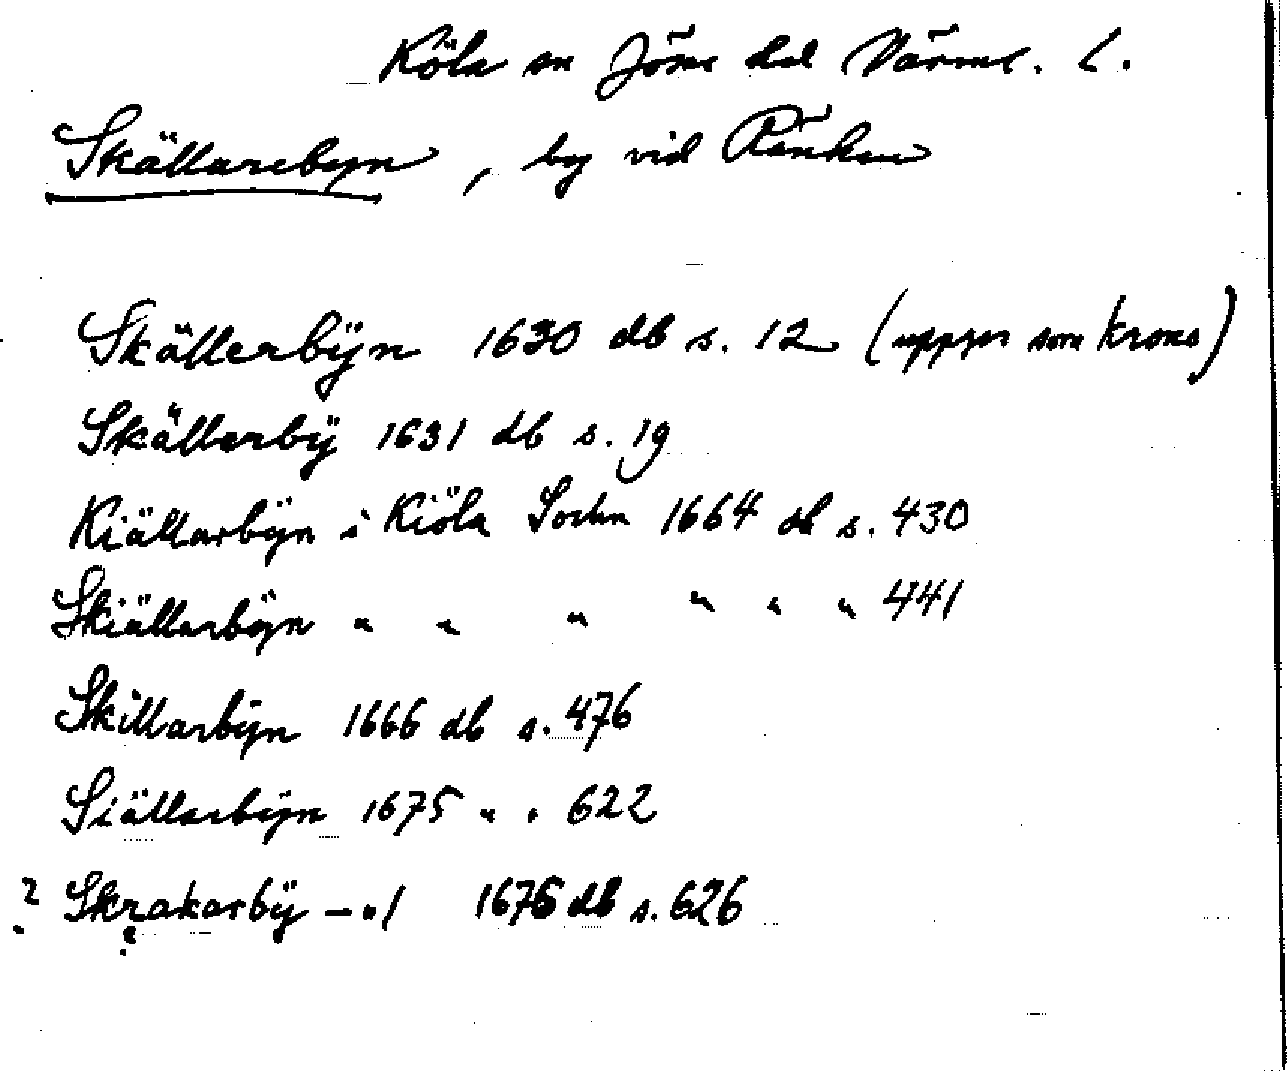 Köla sn Jösse hd Värml. l.
Skällarebyn, by vid Ränken
Skällerbÿn 1630 db s. 12 (uppger som krono)
Skällerbÿ 1631 db s. 19
Kiällarbÿn i Kiöla Sochn 1664 db s. 430
Skiällerbÿn " " " " " " 441
Skillarbÿn 1666 db s. 476
Siällerbÿn 1675 " " 622
? Skrakarbÿ – "/ 1675 db s. 626
?